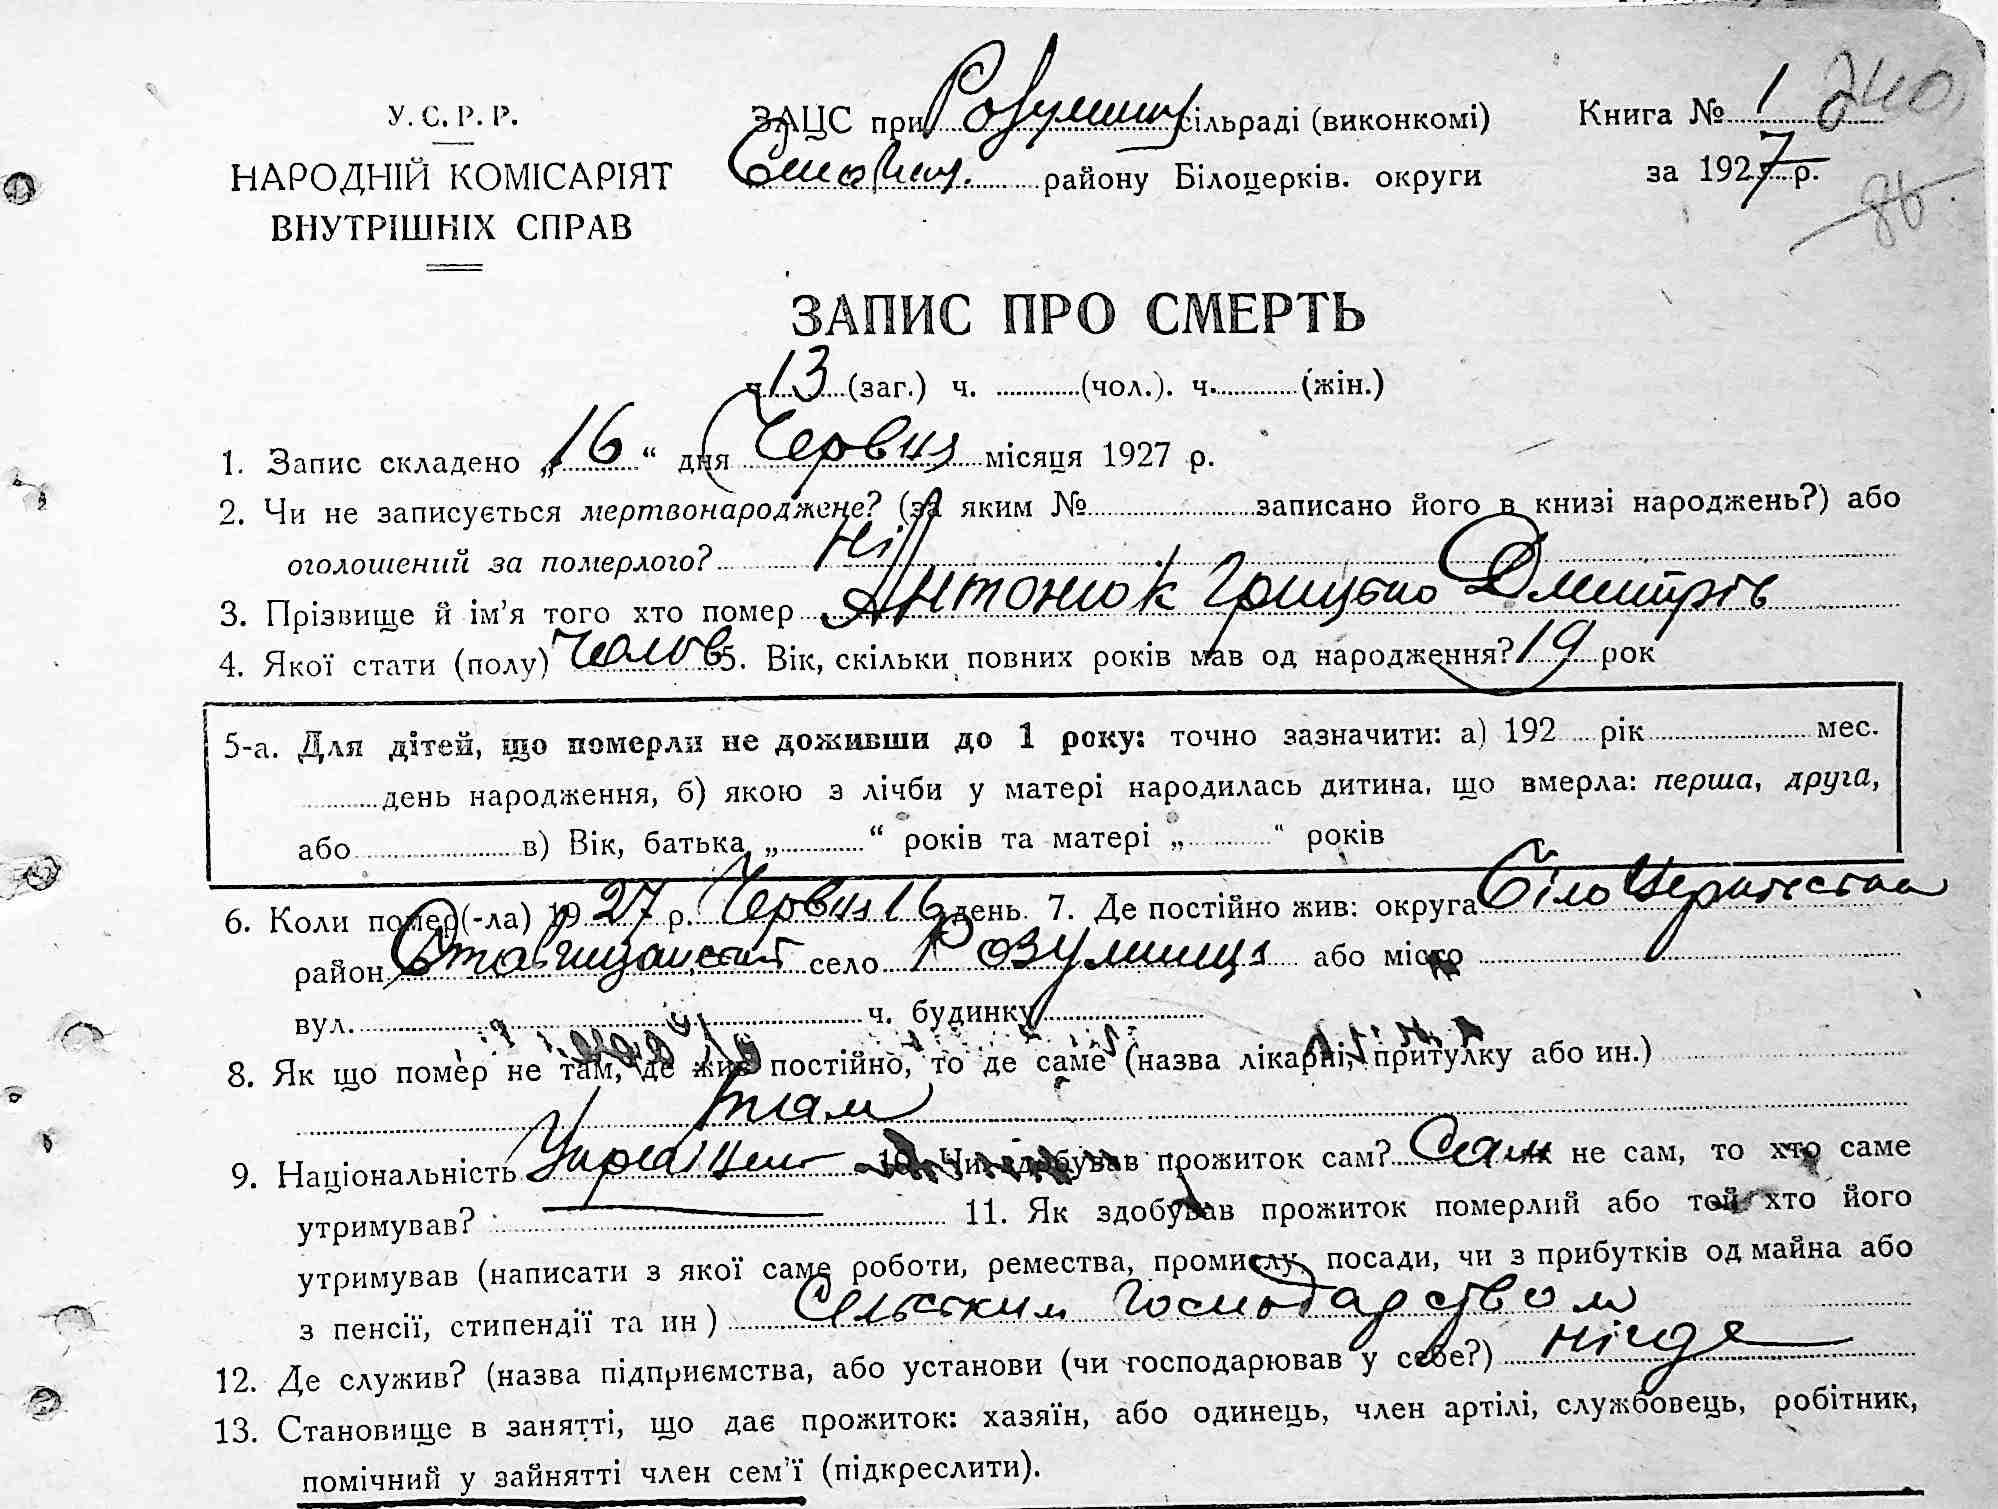 У. С. Р. Р.
НАРОДНІЙ КОМІСАРІЯТ
ВНУТРІШНІХ СПРАВ
ЗАЦС при Розумниц сільраді (виконкомі)
району Білоцерків. округи
Книга № 1 240
за 1927 р.
86
ЗАПИС ПРО СМЕРТЬ
ч. 13 (заг.) ч. (чол.). ч. (жін.)
1. Запис складено „16“ дня Червня місяця 1927 р.
2. Чи не записується мертвонароджене? (за яким № записано його в книзі народжень?) або
оголошений за померлого? Ні
3. Прізвище й ім'я того хто помер Антонюк Грицько Дмитрів
4. Якої стати (полу) Чолов 5. Вік, скільки повних років мав од народження? 19 рок
5-а. Для дітей, що померли не доживши до 1 року: точно зазначити: а) 192 рік мес.
день народження, б) якою з лічби у матері народилась дитина, що вмерла: перша, друга,
або в) Вік, батька „ “ років та матері „ “ років
6. Коли помер(-ла) 1927 р. Червня 16 день. 7. Де постійно жив: округа Білоцерківська
район Ставищанський село Розумниця або місто
вул. ч. будинку
8. Як що помер не там, де жив постійно, то де саме (назва лікарні, притулку або ин.)
там
9. Національність Українец 10. Чи здобував прожиток сам? Сам як не сам, то хто саме
утримував? 11. Як здобував прожиток померлий або той хто його
утримував (написати з якої саме роботи, ремества, промислу, посади, чи з прибутків од майна або
з пенсії, стипендії та ин ) Сельським господарством
12. Де служив? (назва підприємства, або установи (чи господарював у себе?) нігде
13. Становище в занятті, що дає прожиток: хазяїн, або одинець, член артілі, службовець, робітник,
помічний у зайнятті член сем'ї (підкреслити).